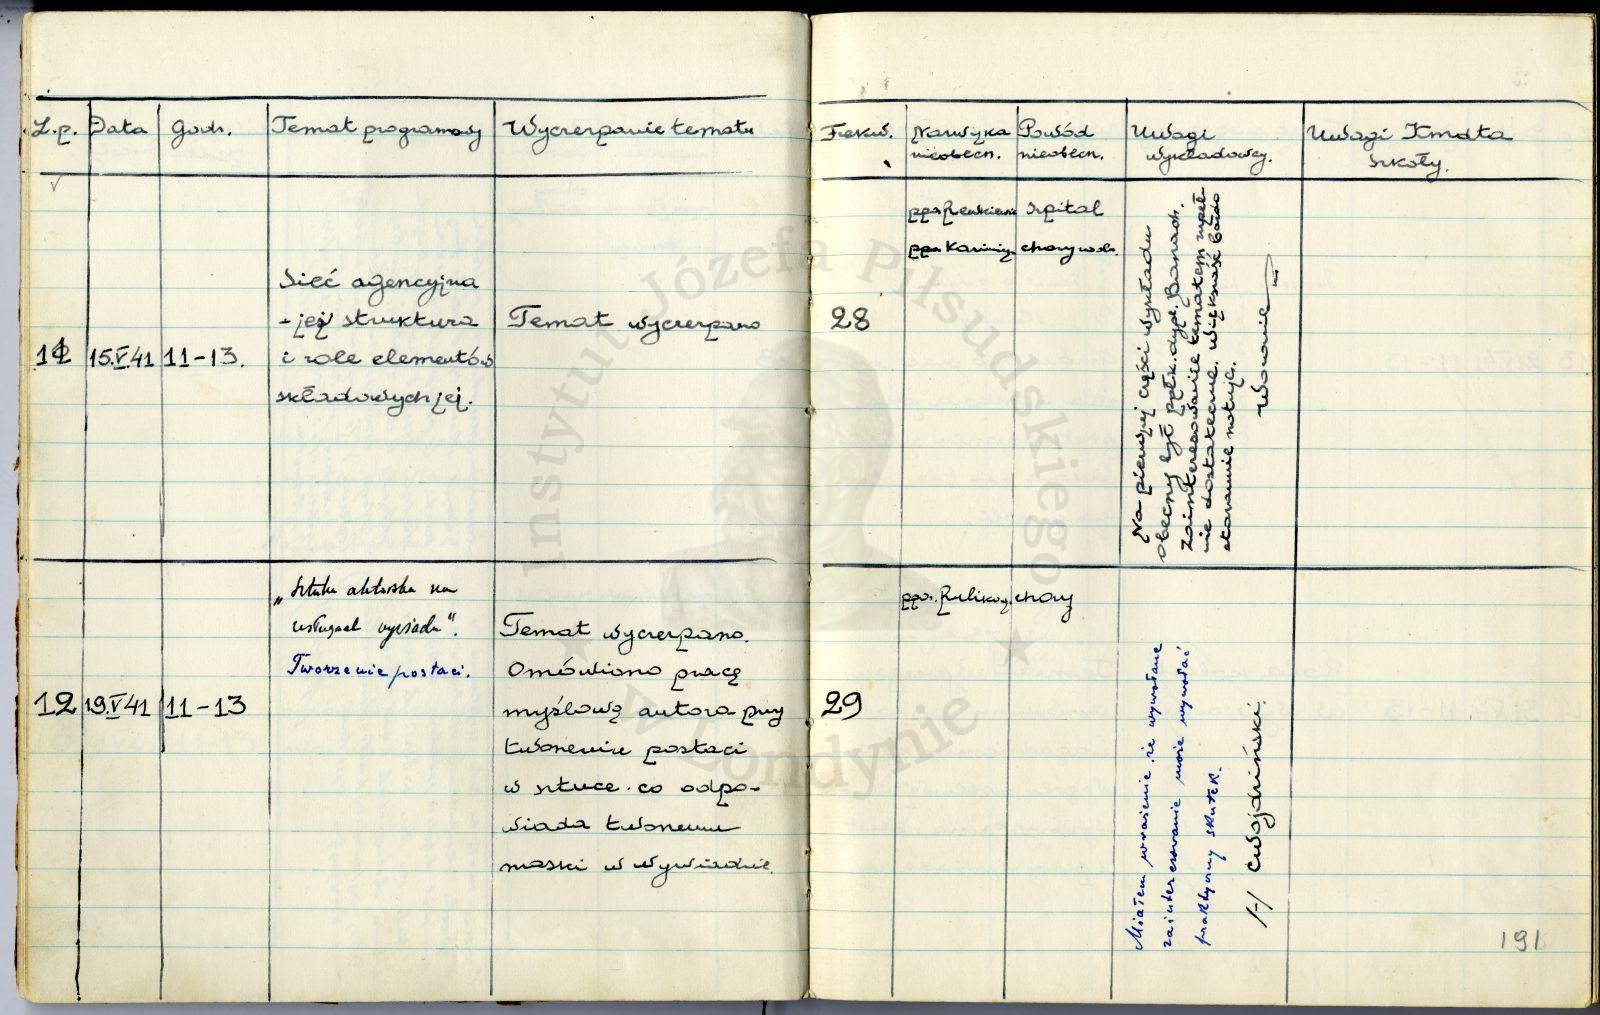 L.p. Data Godz. Temat programowy Wyczerpanie tematu
Frekw. Nazwiska Powód Uwagi Uwagi Kmdta
nieobecn. nieobecn. wykładowcy. szkoły.
11 15.V.41 11-13.
Sieć agencyjna
- jej struktura
i role elementów
składowych jej.
Temat wyczerpano
28
ppor. szpital
ppor. chory
Na pierwszej części wykładu
obecny był ppłk. dypl. Banach.
Zainteresowanie tematem zupeł-
nie dostateczne. Większość bardzo
starannie notuje.
12 19.V.41 11-13
"Sztuka aktorska na
usługach wywiadu".
Tworzenie postaci.
Temat wyczerpano.
Omówiono pracę
myślową autora przy
tworzeniu postaci
w sztuce. co odpo-
wiada tworzeniu
maski w wywiadzie.
29
ppor. chory
Miałem wrażenie, że wywołane
zainteresowanie może wywołać
praktyczny skutek.
/-/ Cwojdziński.
191
Instytut Józefa Piłsudskiego
w Londynie